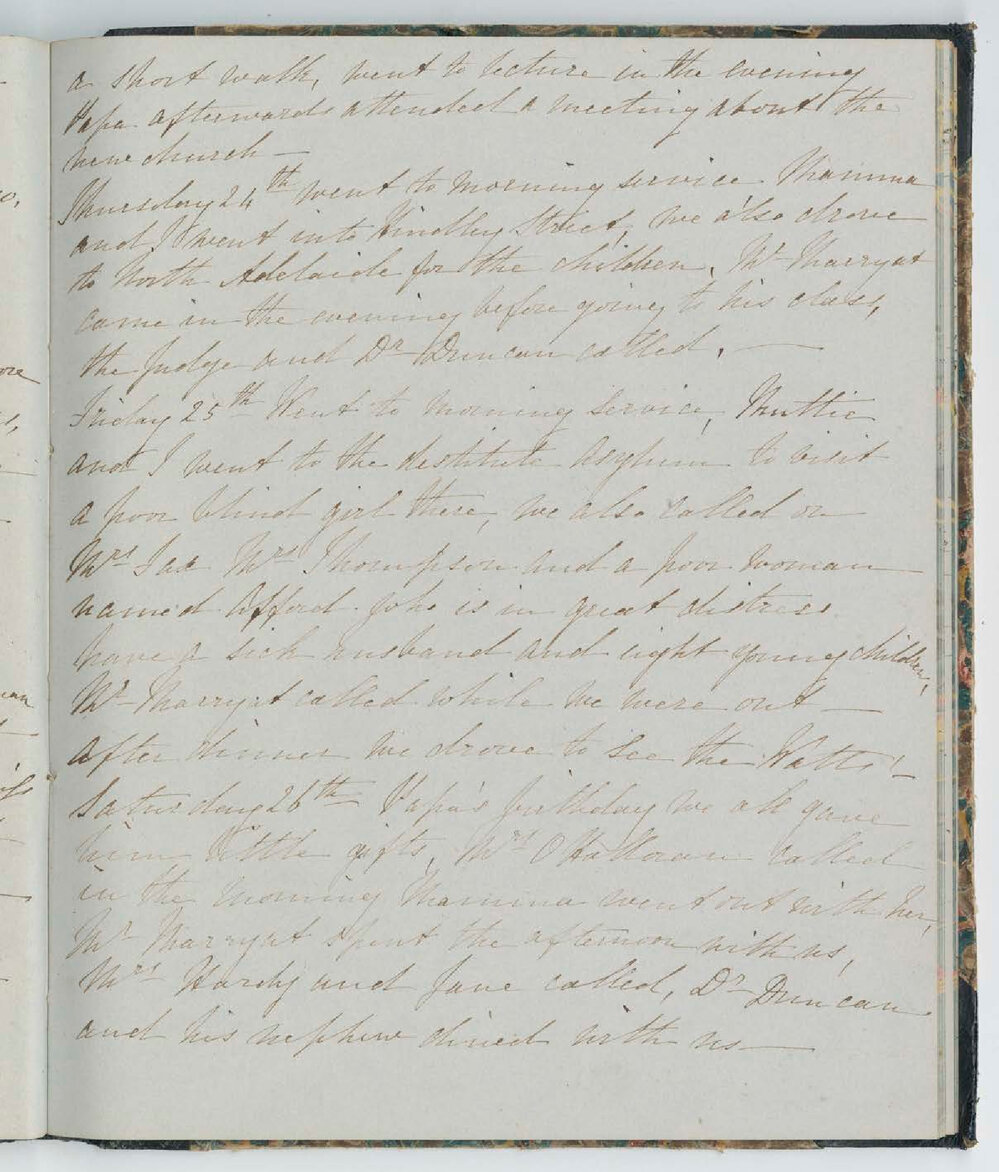 a short walk, went to lecture in the evening
Papa afterwards attended a meeting about the
new church —
Thursday 24th went to morning service Mamma
and I went into Hindley Street, we also drove
to North Adelaide for the children, Mr Marryat
came in the evening before going to his class,
the Judge and Dr Duncan called. —
Friday 25th Went to morning service, Muttie
and I went to the destitute asylum to visit
a poor blind girl there, we also called on
Mrs Mrs Thompson and a poor woman
named Afford who is in great distress
have a sick husband and eight young children,
Mr Marryat called while we were out —
after dinner we drove to see the Watts' —
Saturday 26th Papa's birthday we all gave
him little gifts, Mrs O'Halloran called
in the morning Mamma went out with her,
Mr Marryat spent the afternoon with us,
Mrs Hardy and Jane called, Dr Duncan
and his nephew dined with us —